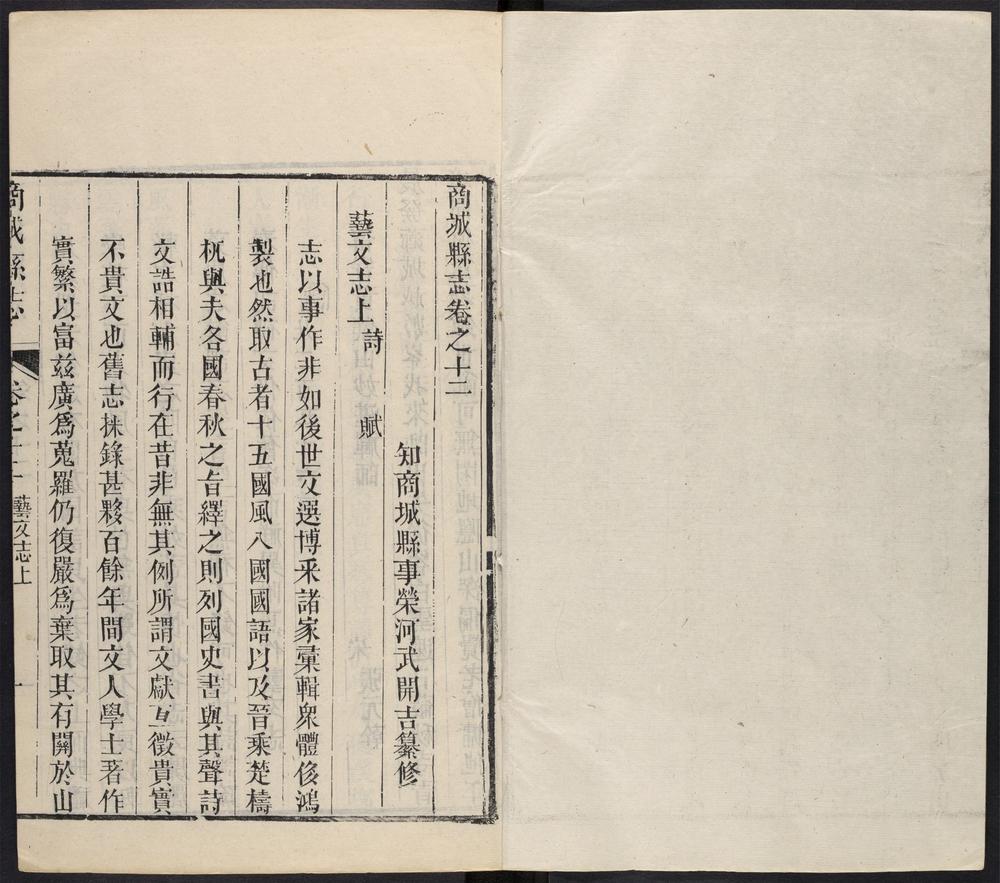 商城縣志卷之十二
知商城縣事榮河武開吉纂修
藝文志上 詩 賦
志以事作非如後世文選博釆諸家彚輯衆體侈鴻
製也然取古者十五國風八國國語以及晉乘楚檮
杌與夫各國春秋之旨繹之則列國史書與其聲詩
文誥相輔而行在昔非無其例所謂文獻互徵貴實
不貴文也舊志採錄甚夥百餘年間文人學士著作
實繁以富兹廣爲蒐羅仍復嚴爲棄取其有關於山
商城縣志 卷之十二 藝文志上 一